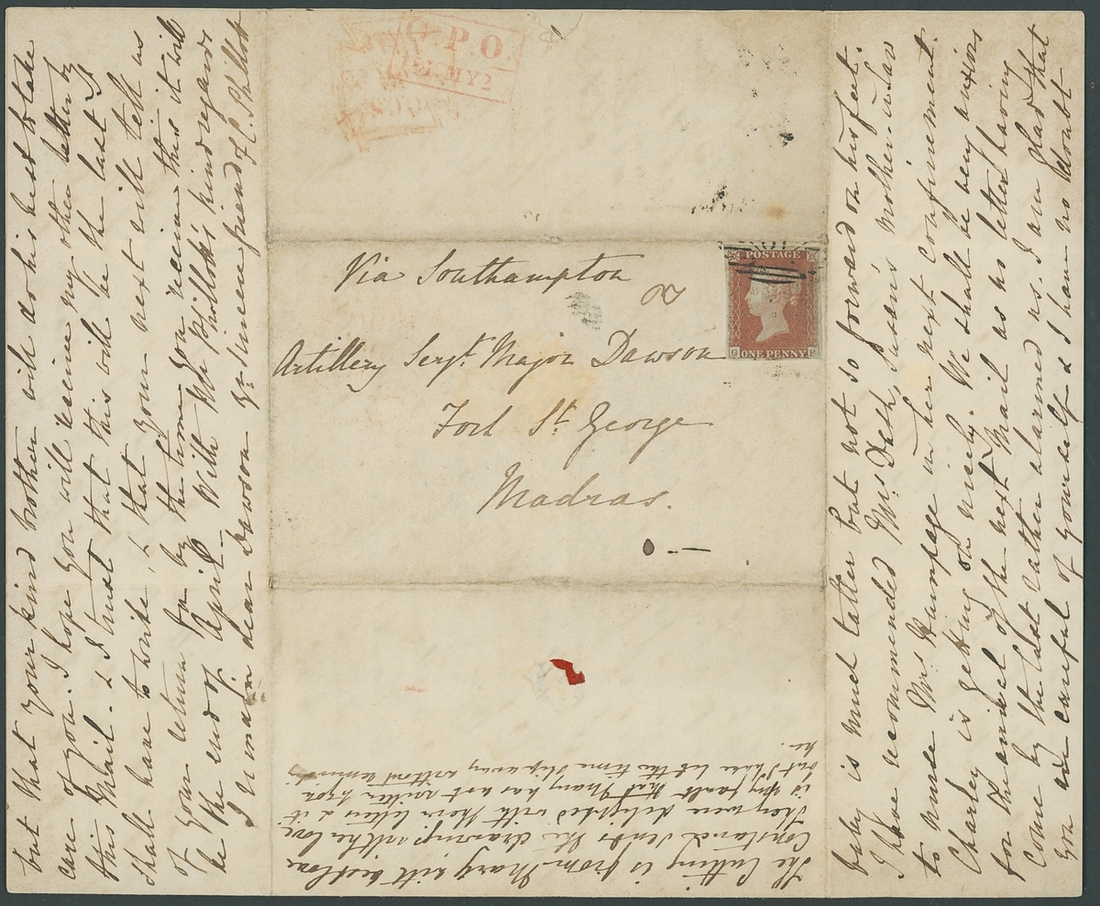 G.P.O.
MY 2
POSTAGE
ONE PENNY
Via Southampton
Artillery Sergt. Major Dawson
Fort St. George
Madras.
baby is much fatter but not so forward on his feet.
I have recommended Mrs. Susan's mother in law
to nurse Mrs. Rumpage in her next confinement.
Charley is getting on nicely. We shall be very anxious
for the arrival of the next Mail as no letter having
come by the last rather alarmed us. I am glad that
you are careful of yourself & I have no doubt
but that your kind brother will do his best to take
care of you. I hope you will receive my other letter by
this Mail. & I trust that this will be the last I
shall have to write, & that your next will tell us
of your return by the time you receive this it will
be the end of April. With Mr. Phillott's kind regards
I remain dear Dawson yr. sincere friend C. Phillott
The Cutting is from Mary with best love
Constance sends the drawings with her love
They were delighted with their letters & it
is my fault that Mary has not written to you
but I have let the time slip away without reminding
her.